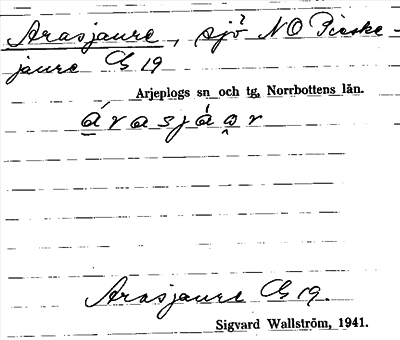 Arasjaure, sjö NO Pieske-
jaure G 19
Arjeplogs sn och tg, Norrbottens län.
árasjáo̭r
Arasjaure G 19.
Sigvard Wallström, 1941.